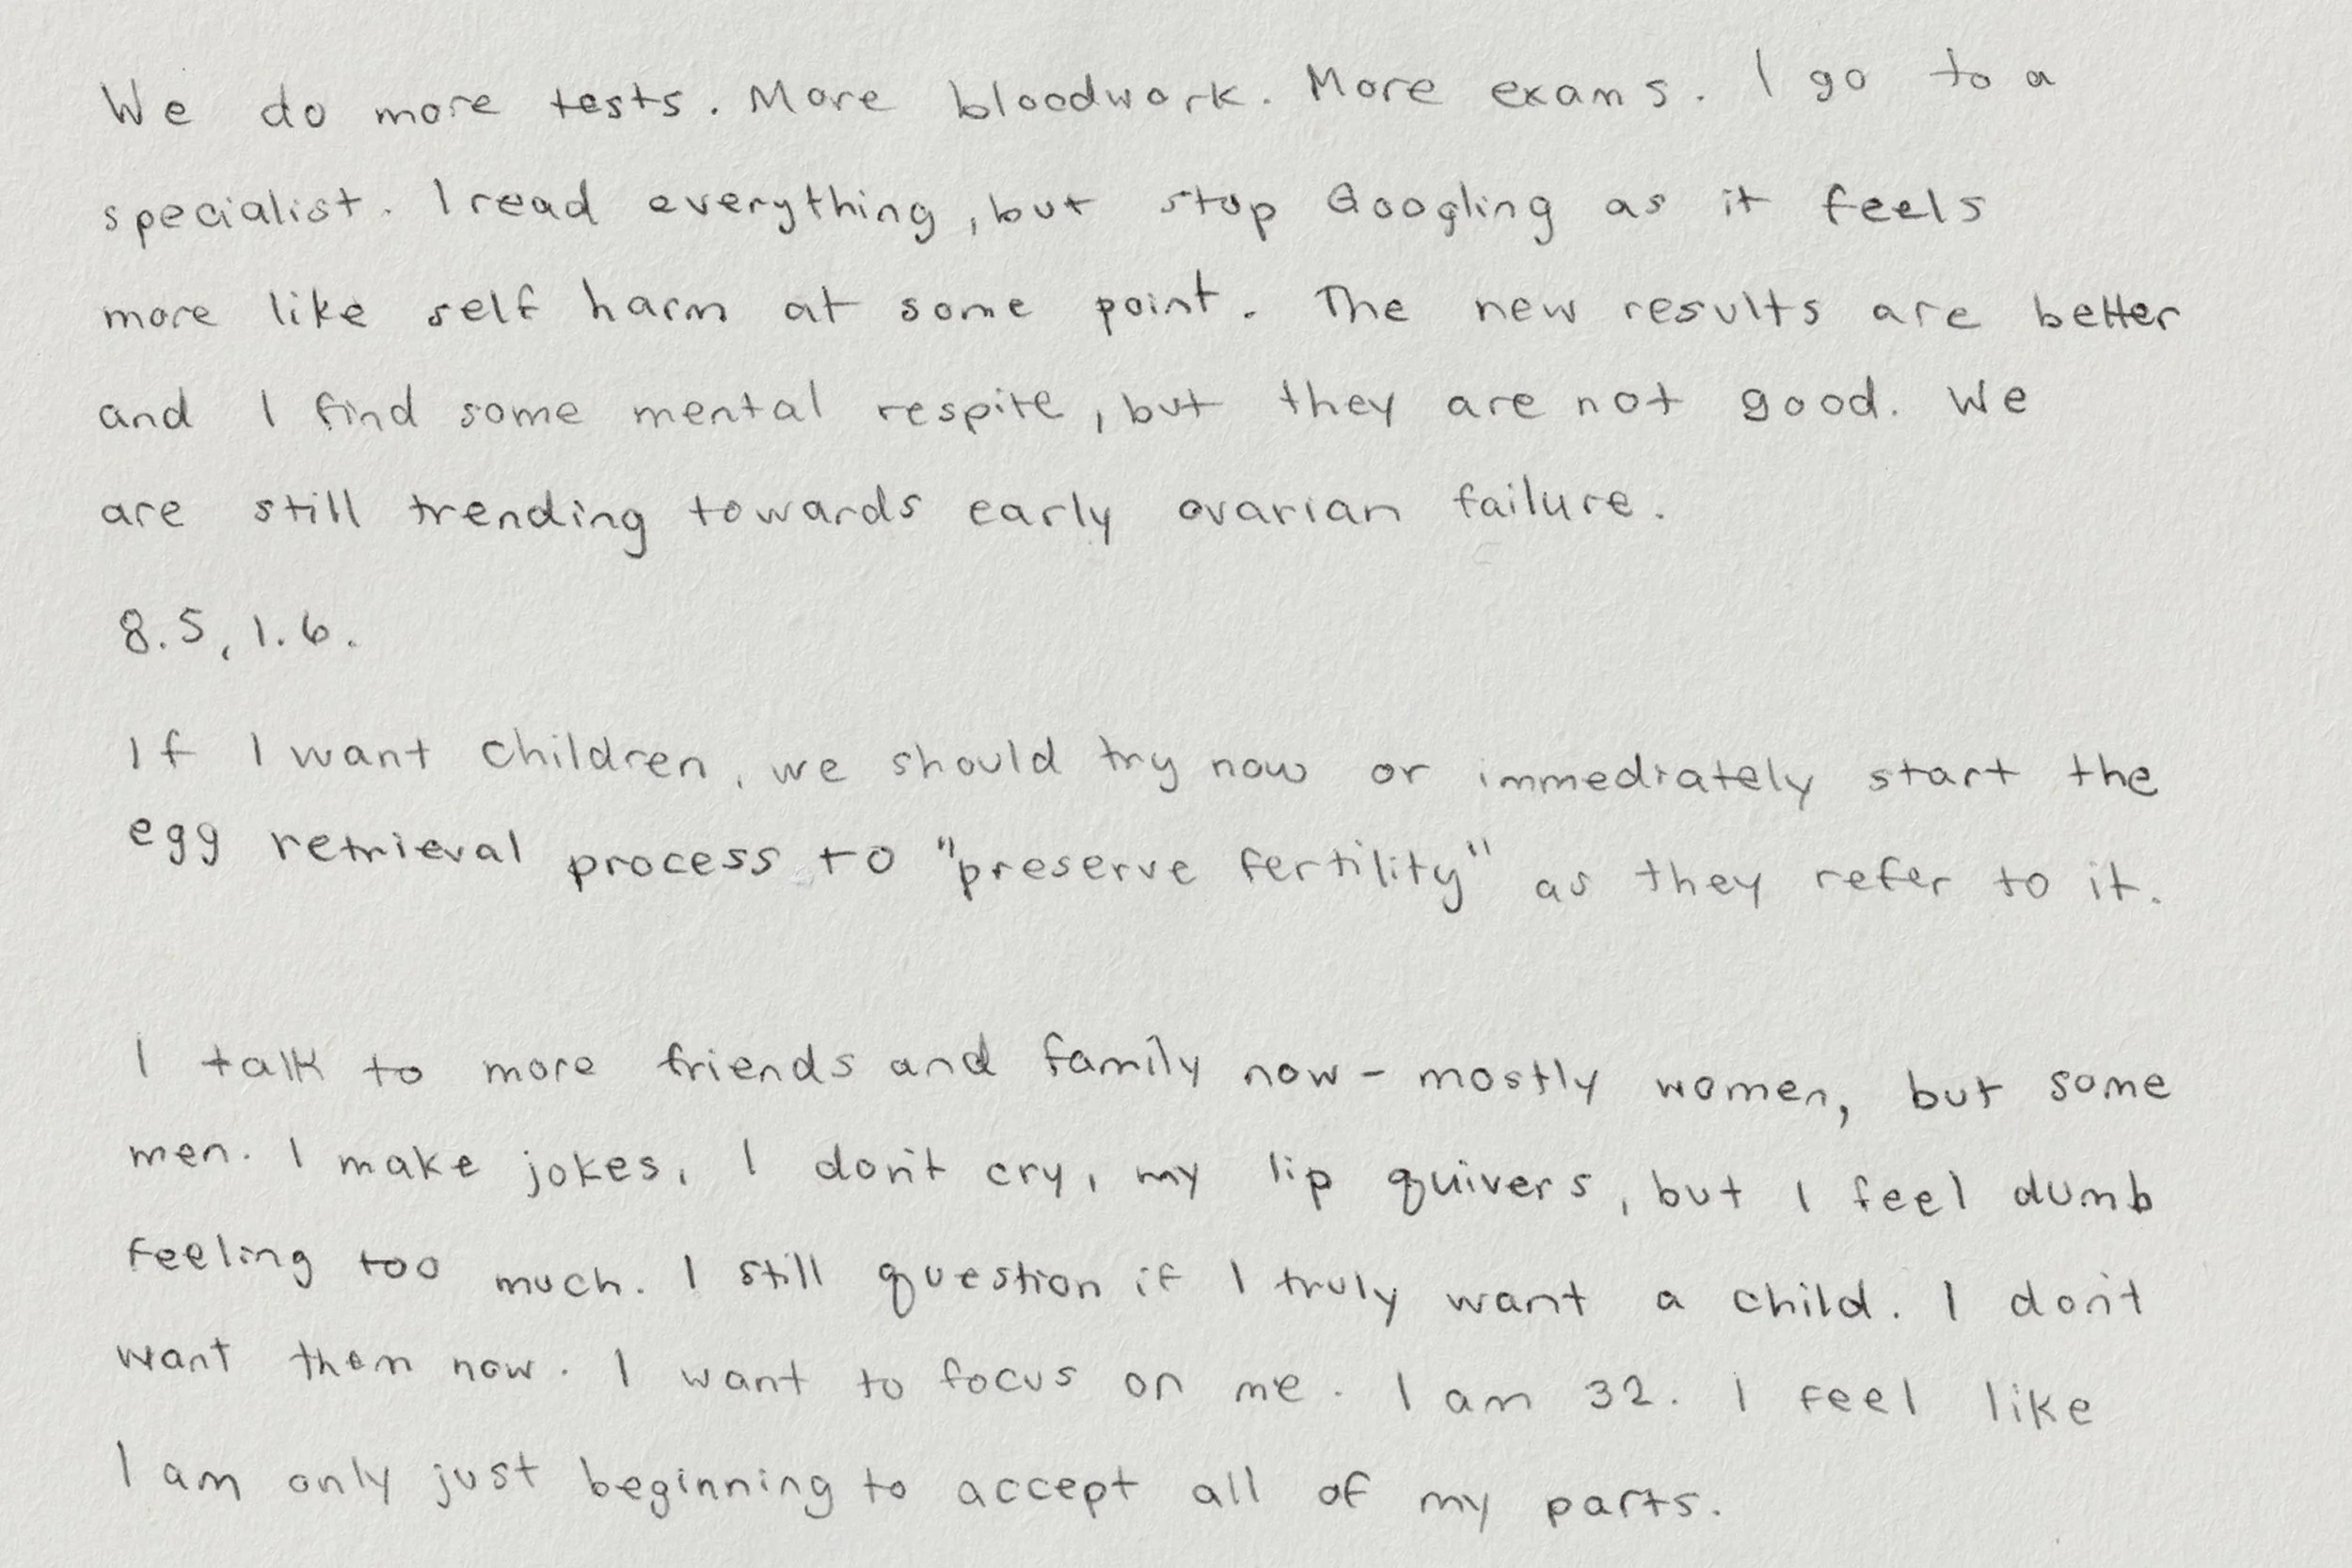 We do more tests. More bloodwork. More exams. I go to a
specialist. I read everything, but stop Googling as it feels
more like self harm at some point. The new results are better
and I find some mental respite, but they are not good. We
are still trending towards early ovarian failure.
8.5, 1.6.
If I want children, we should try now or immediately start the
egg retrieval process to "preserve fertility" as they refer to it.
I talk to more friends and family now - mostly women, but some
men. I make jokes, I don't cry, my lip quivers, but I feel dumb
feeling too much. I still question if I truly want a child. I don't
want them now. I want to focus on me. I am 32. I feel like
I am only just beginning to accept all of my parts.